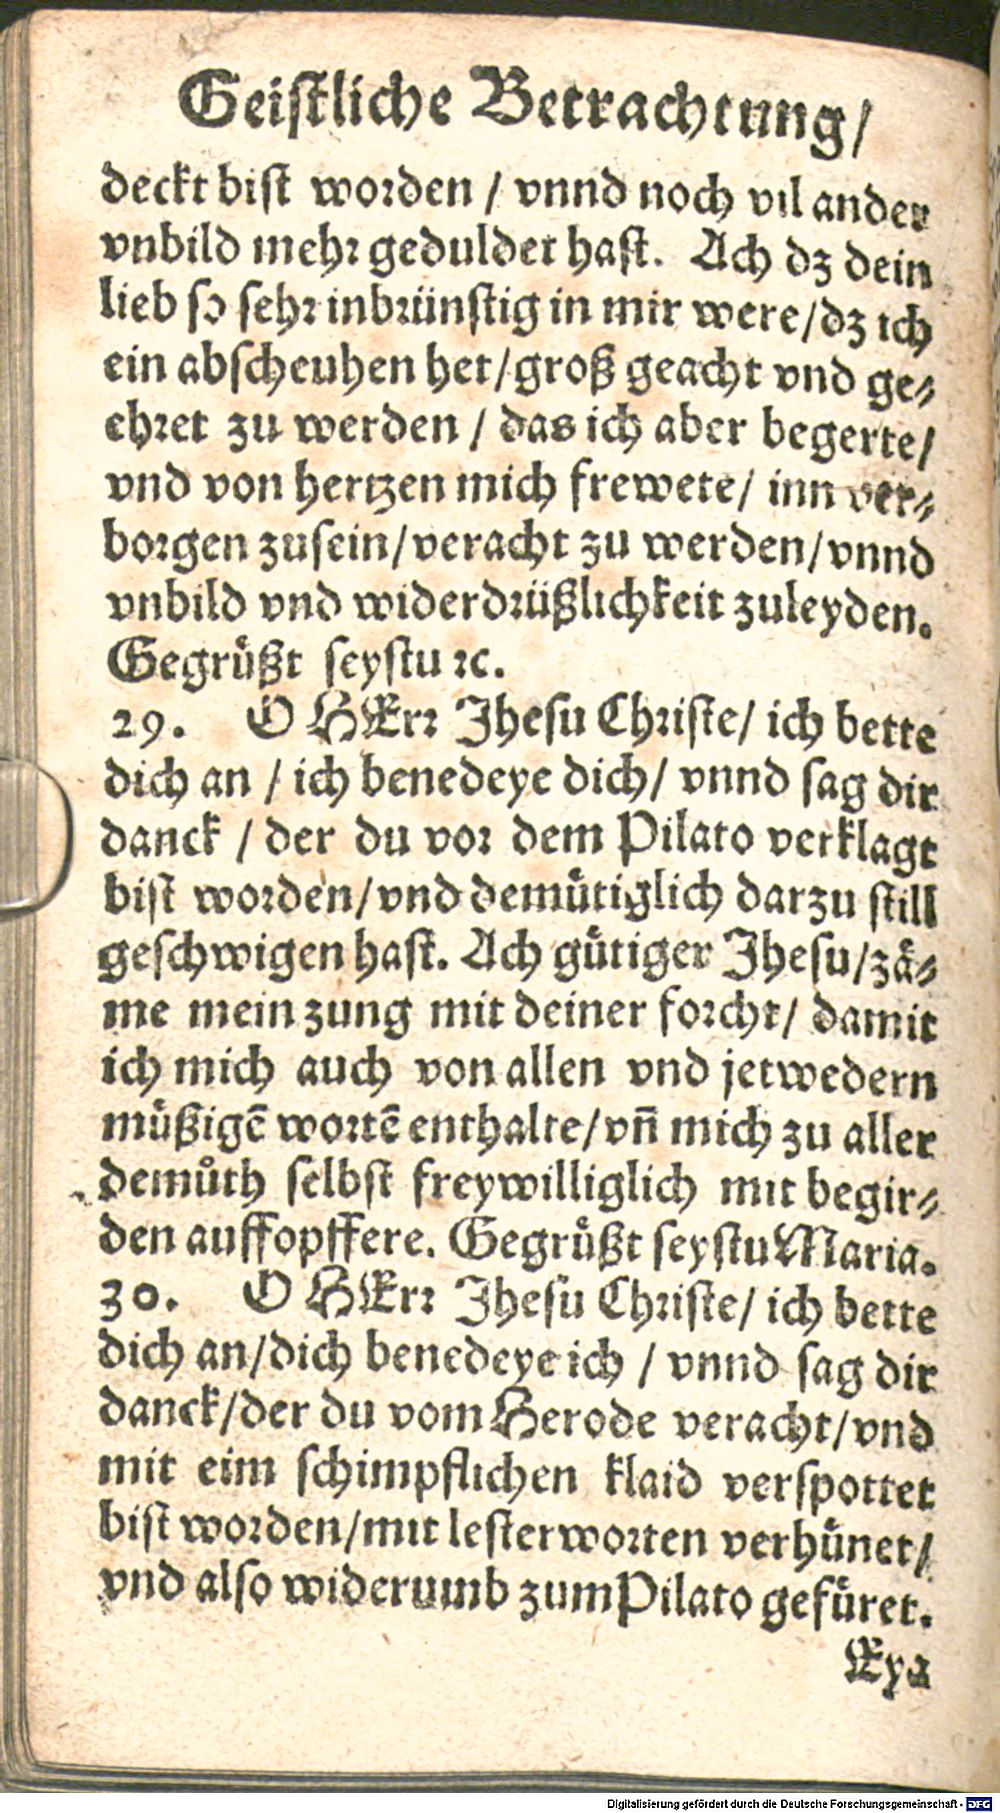 Geistliche Betrachtung/
deckt bist worden / vnnd noch vil ander
vnbild mehr geduldet hast. Ach dz dein
lieb so sehr inbrünstig in mir were/dz ich
ein abscheuhen het/groß geacht vnd ge⸗
ehret zu werden / das ich aber begerte/
vnd von hertzen mich frewete/ inn ver⸗
borgen zusein/veracht zu werden/vnnd
vnbild vnd widerdrüßlichkeit zuleyden.
Gegrüßt seystu ꝛc.
29. O HErr Jhesu Christe/ ich bette
dich an / ich benedeye dich/ vnnd sag dir
danck / der du vor dem Pilato verklagt
bist worden/vnd demütiglich darzu still
geschwigen hast. Ach gütiger Jhesu/zä⸗
me mein zung mit deiner forcht/ damit
ich mich auch von allen vnd jetwedern
müßigē wortē enthalte/vñ mich zu aller
demůth selbst freywilliglich mit begir⸗
den auffopffere. Gegrüßt seystu Maria.
30. O HErr Jhesu Christe/ ich bette
dich an/dich benedeye ich / vnnd sag dir
danck/der du vom Herode veracht/vnd
mit eim schimpflichen klaid verspottet
bist worden/mit lesterworten verhünet/
vnd also widerumb zum Pilato gefüret.
Eya
Digitalisierung gefördert durch die Deutsche Forschungsgemeinschaft - DFG